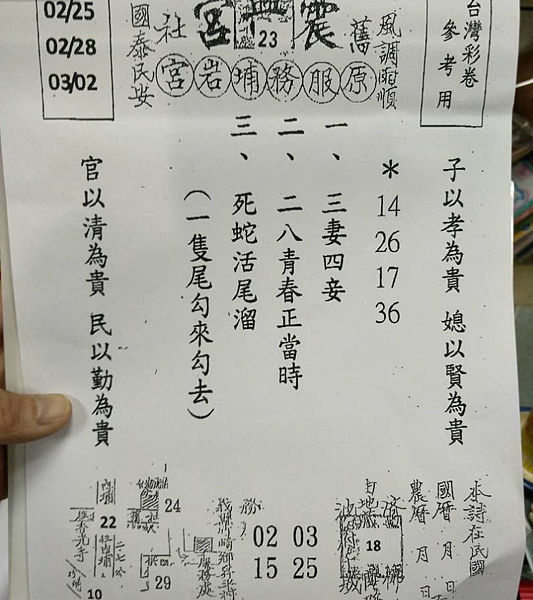 台灣彩卷
參考用
風調雨順
舊
震
宮
23
社
國泰民安
原服務埔岩宮
02/25
02/28
03/02
子以孝為貴 媳以賢為貴
*14 26 17 36
一、三妻四妾
二、二八青春正當時
三、死蛇活尾溜
(一隻尾勾來勾去)
官以清為貴 民以勤為貴
本詩在民國
國曆 月 日
農曆 月 日
18
02 03
15 25
24
29
22
10